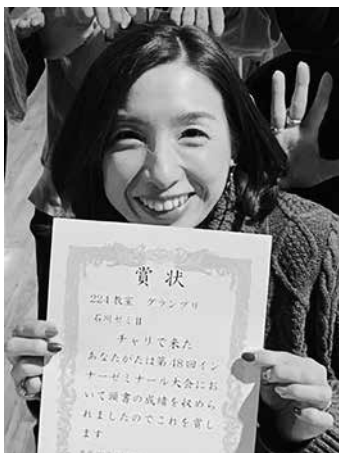 賞状
224教室 グランプリ
石川ゼミⅡ
チャリで来た
あなたがたは第48回イン
ナーゼミナール大会にお
いて頭書の成績を収めら
れましたのでこれを賞し
ます